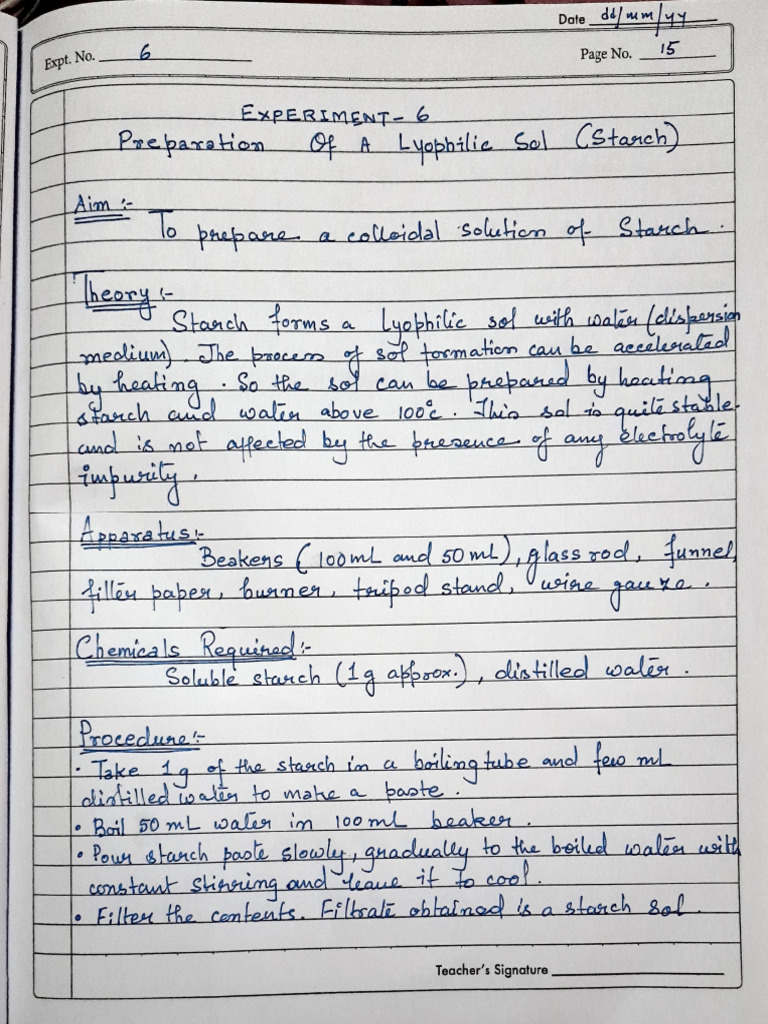 Date dd/mm/yy
Expt. No. 6
Page No. 15
EXPERIMENT-6
Preparation Of A Lyophilic Sol (Starch)
Aim :-
To prepare a colloidal solution of Starch.
Theory :-
Starch forms a Lyophilic sol with water (dispersion
medium). The process of sol formation can be accelerated
by heating. So the sol can be prepared by heating
starch and water above 100°c. This sol is quite stable
and is not affected by the presence of any electrolyte
impurity.
Apparatus:-
Beakers (100mL and 50mL), glass rod, funnel,
filter paper, burner, tripod stand, wire gauze.
Chemicals Required:-
Soluble starch (1g approx.), distilled water.
Procedure:-
• Take 1g of the starch in a boiling tube and few mL
distilled water to make a paste.
• Boil 50mL water in 100mL beaker.
• Pour starch paste slowly, gradually to the boiled water with
constant stirring and leave it to cool.
• Filter the contents. Filtrate obtained is a starch sol.
Teacher's Signature